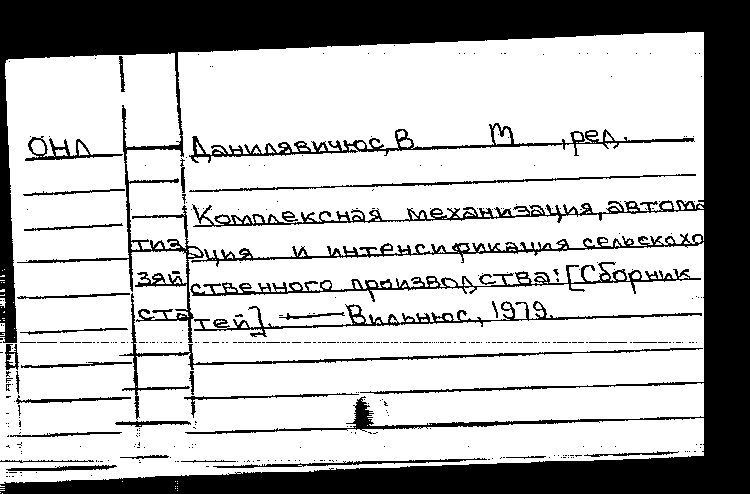 ОНЛ Данилявичюс, В М , ред.
Комплексная механизация, автома
тизация и интенсификация сельскохо
зяйственного производства: [Сборник
статей]. — Вильнюс, 1979.